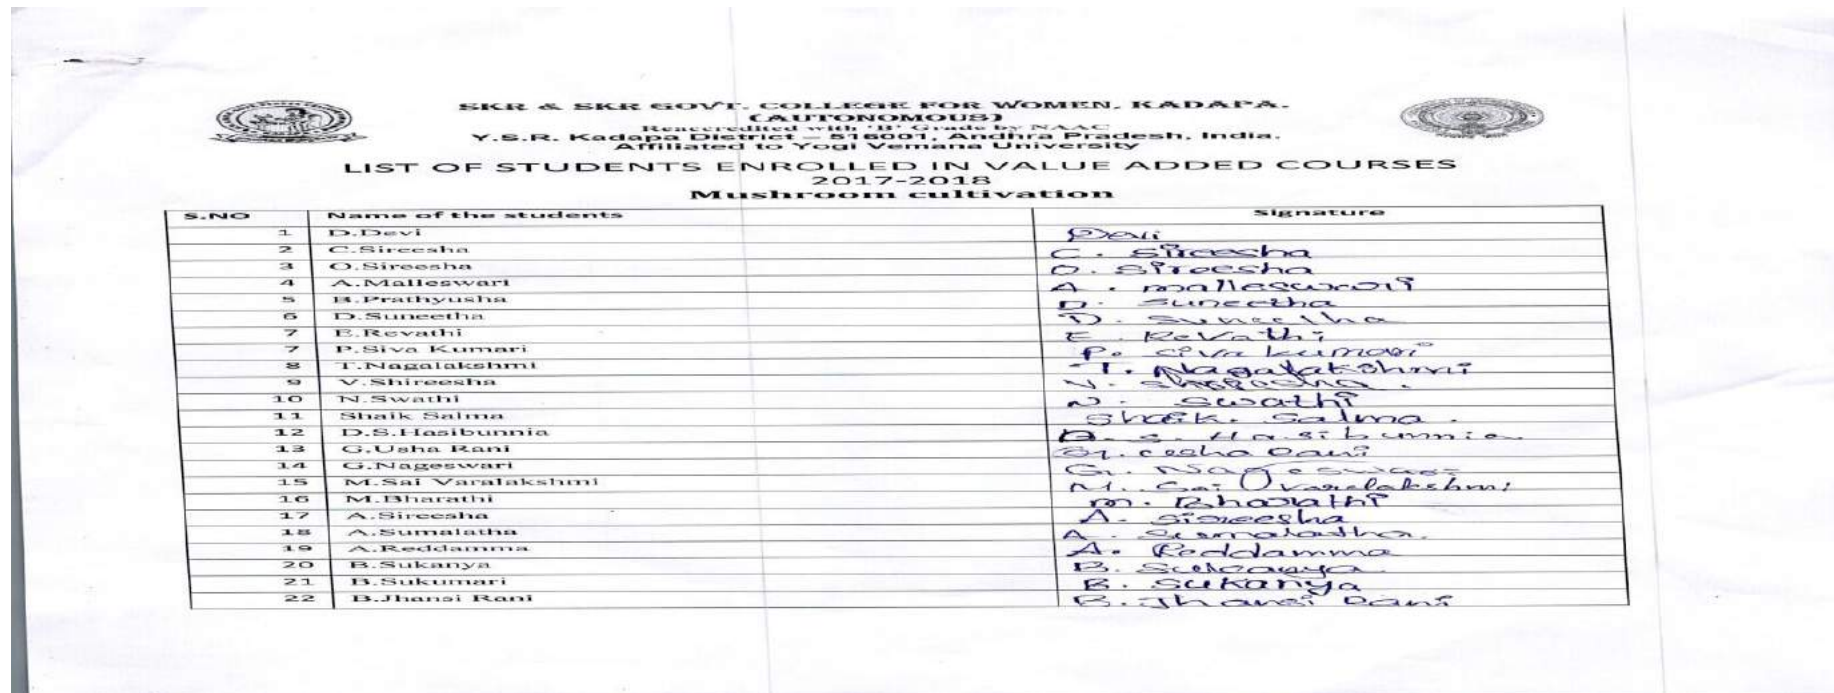 SKR & SKR GOVT. COLLEGE FOR WOMEN, KADAPA.
(AUTONOMOUS)
Reaccredited with 'B' Grade by NAAC
Y.S.R. Kadapa District – 516001, Andhra Pradesh, India.
Affiliated to Yogi Vemana University
LIST OF STUDENTS ENROLLED IN VALUE ADDED COURSES
2017-2018
Mushroom cultivation
S.NO Name of the students Signature
1 D.Devi Devi
2 C.Sireesha C. Sireesha
3 O.Sireesha O. Sireesha
4 A.Malleswari A. malleswari
5 B.Prathyusha D. Suneetha
6 D.Suneetha D. Suneetha
7 E.Revathi E. Revathi
7 P.Siva Kumari P. Siva kumari
8 T.Nagalakshmi T. Nagalakshmi
9 V.Shireesha V. Shireesha.
10 N.Swathi N. Swathi
11 Shaik Salma Shaik. Salma.
12 D.S.Hasibunnia D. S. Hasibunnia
13 G.Usha Rani G. Usha Rani
14 G.Nageswari G. Nageswari
15 M.Sai Varalakshmi M. Sai Varalakshmi
16 M.Bharathi M. Bharathi
17 A.Sireesha A. Sireesha
18 A.Sumalatha A. Sumalatha.
19 A.Reddamma A. Reddamma
20 B.Sukanya B. Sukanya.
21 B.Sukumari B. Sukanya
22 B.Jhansi Rani B. Jhansi Rani